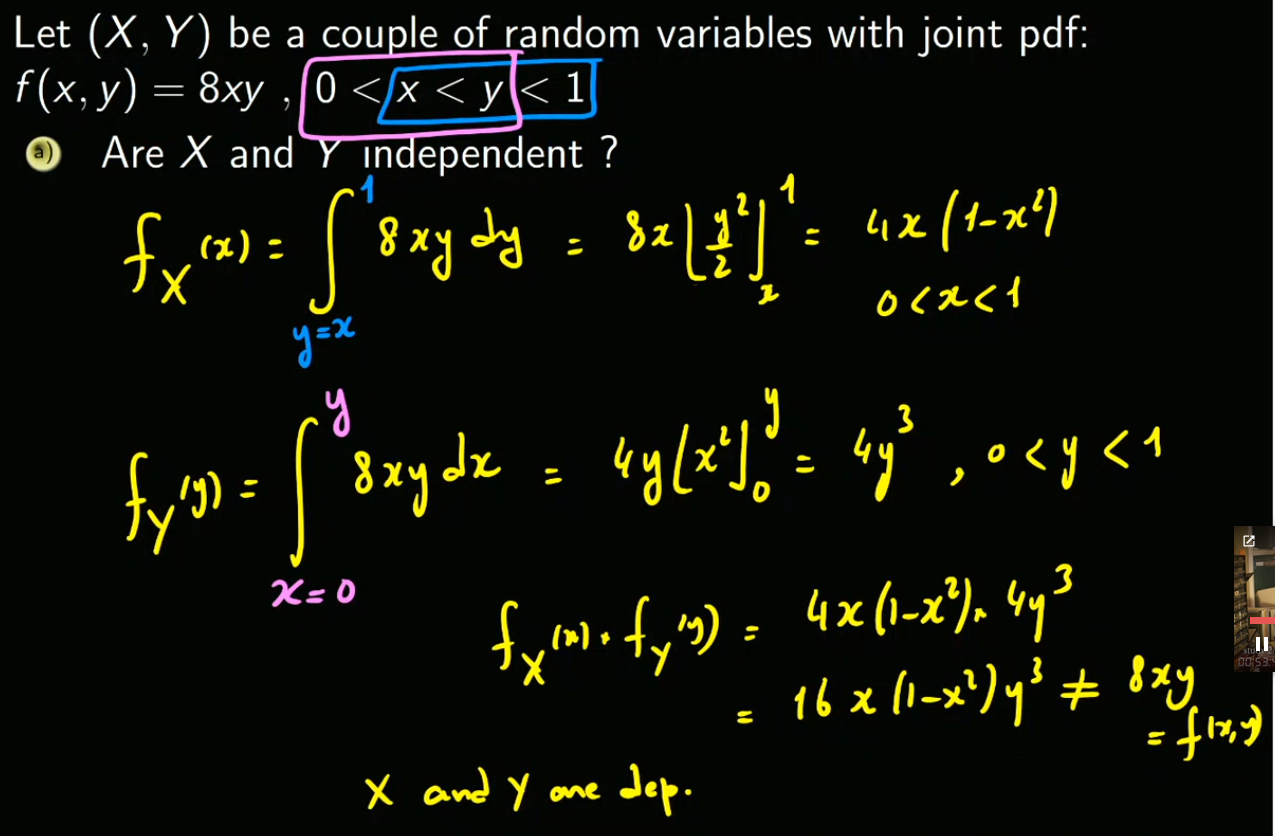 Let (X, Y) be a couple of random variables with joint pdf:
f(x, y) = 8xy , 0 < x < y < 1
a) Are X and Y independent ?
f_X(x) = ∫_{y=x}^{1} 8xy dy = 8x [y²/2]_x^1 = 4x(1-x²)
0<x<1
f_Y(y) = ∫_{x=0}^{y} 8xy dx = 4y[x²]_0^y = 4y³ , 0<y<1
f_X(x) · f_Y(y) = 4x(1-x²) · 4y³
= 16x(1-x²)y³ ≠ 8xy
= f(x,y)
X and Y are dep.